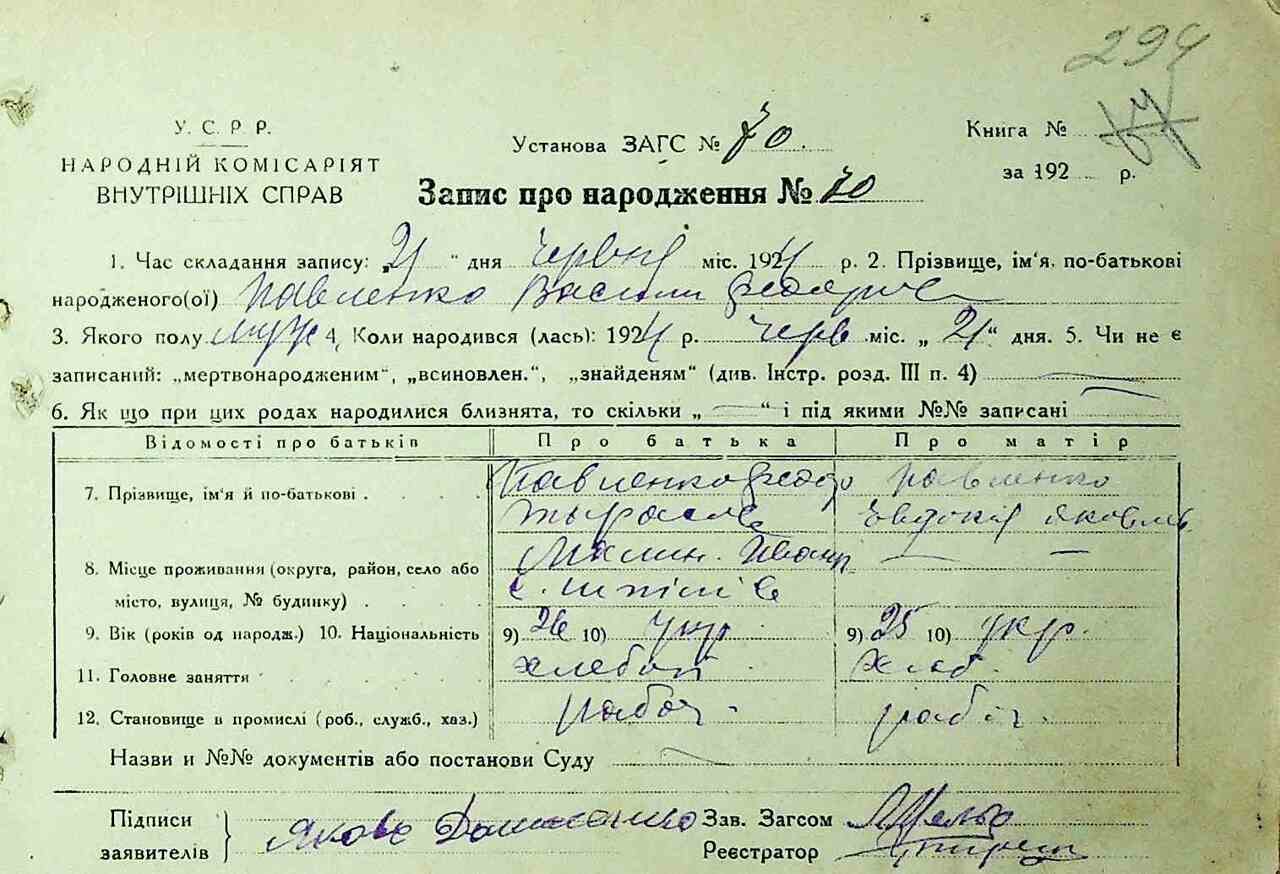 294
У. С. Р. Р.
НАРОДНІЙ КОМІСАРІЯТ
ВНУТРІШНІХ СПРАВ
Установа ЗАГС № 70.
Книга №
за 192 р.
Запис про народження № 70
1. Час складання запису: „21 “ дня червня міс. 1924 р. 2. Прізвище, ім'я, по-батькові
народженого(ої) Павленко Василий
3. Якого полу муж 4. Коли народився (лась): 1924 р. черв міс. „ 21 “ дня. 5. Чи не є
записаний: „мертвонародженим“, „всиновлен.“, „знайденям“ (див. Інстр. розд. III п. 4)
6. Як що при цих родах народилися близнята, то скільки „ — “ і під якими №№ записані
Відомості про батьків Про батька Про матір
7. Прізвище, ім'я й по-батькові . Павленко Федор Павленко
Евдокия Яковлев
8. Місце проживання (округа, район, село або
місто, вулиця, № будинку) . с.
9. Вік (років од народж.) 10. Національність 9) 26 10) укр. 9) 25 10) укр.
11. Головне заняття хлебоп хлеб.
12. Становище в промислі (роб., служб., хаз.) рабоч. рабоч.
Назви и №№ документів або постанови Суду
Підписи
заявителів
Яков
Зав. Загсом
Реєстратор